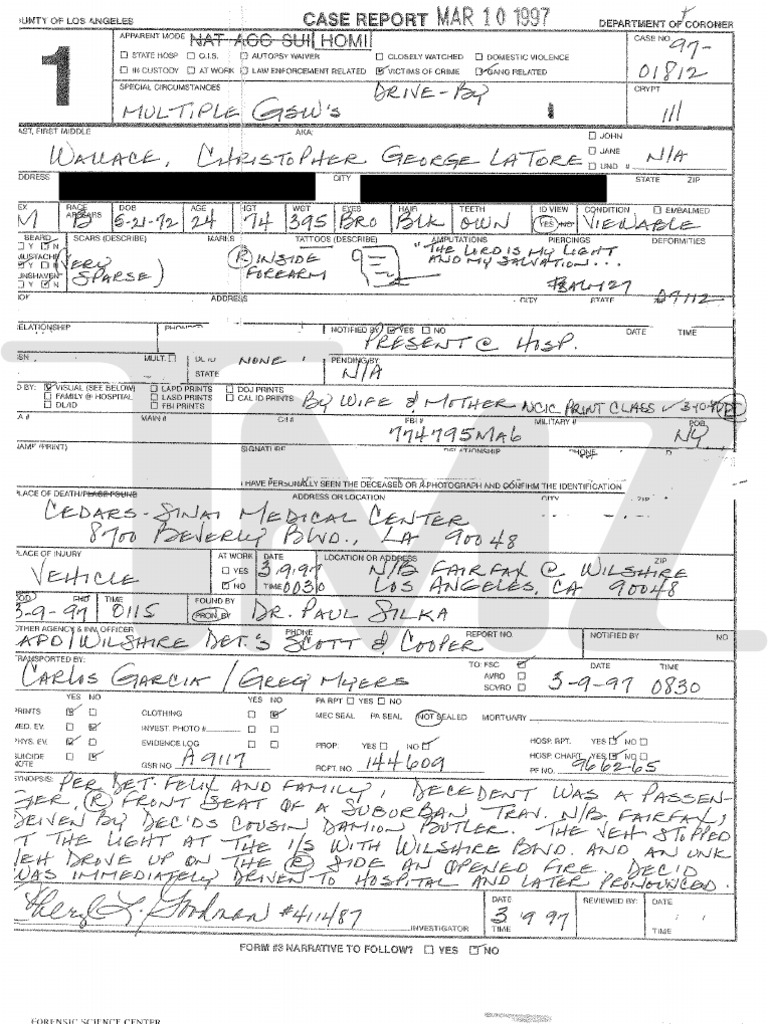 UNTY OF LOS ANGELES CASE REPORT MAR 10 1997 DEPARTMENT OF CORONER
1
APPARENT MODE NAT ACC SUI HOMI CASE NO. 97-
☐ STATE HOSP ☐ O.I.S. ☐ AUTOPSY WAIVER ☐ CLOSELY WATCHED ☐ DOMESTIC VIOLENCE
☐ IN CUSTODY ☐ AT WORK ☐ LAW ENFORCEMENT RELATED ☑ VICTIMS OF CRIME ☑ GANG RELATED 01812
SPECIAL CIRCUMSTANCES DRIVE-BY CRYPT
MULTIPLE GSW'S 111
AST, FIRST MIDDLE AKA: ☐ JOHN
WALLACE, CHRISTOPHER GEORGE LATORE ☐ JANE
☐ UND # N/A
DDRESS CITY STATE ZIP
EX RACE APPEARS DOB AGE HGT WGT EYES HAIR TEETH ID VIEW CONDITION ☐ EMBALMED
M B 5-21-72 24 74 395 BRO BLK OWN YES NO VIEWABLE
BEARD SCARS (DESCRIBE) MARKS TATTOOS (DESCRIBE) AMPUTATIONS PIERCINGS DEFORMITIES
☐ Y ☑ N
MUSTACHE (VERY SPARSE) R INSIDE FOREARM "THE LORD IS MY LIGHT
AND MY SALVATION...
UNSHAVEN PSALM 27
☐ Y ☑ N
ADDRESS CITY STATE
ELATIONSHIP PHONE NOTIFIED BY ☑ YES ☐ NO DATE TIME
PRESENT @ HOSP.
MULT. ☐ DL/ID NONE PENDING BY
STATE N/A
D BY: ☑ VISUAL (SEE BELOW) ☐ LAPD PRINTS ☐ DOJ PRINTS
☐ FAMILY @ HOSPITAL ☐ LASD PRINTS ☐ CAL ID PRINTS BY WIFE & MOTHER NCIC PRINT CLASS
☐ DL/ID ☐ FBI PRINTS
A # MAIN # CII # FBI # MILITARY # POB
774795MA6 NY
AME (PRINT) SIGNATURE RELATIONSHIP PHONE
I HAVE PERSONALLY SEEN THE DECEASED OR A PHOTOGRAPH AND CONFIRM THE IDENTIFICATION
LACE OF DEATH/PLACE FOUND ADDRESS OR LOCATION CITY ZIP
CEDARS-SINAI MEDICAL CENTER
8700 BEVERLY BLVD., LA 90048
LACE OF INJURY AT WORK DATE LOCATION OR ADDRESS ZIP
VEHICLE ☐ YES 3-9-97 N/B FAIRFAX @ WILSHIRE
☑ NO TIME 0030 LOS ANGELES, CA 90048
DOD FND TIME FOUND BY
3-9-97 0115 PRON. BY DR. PAUL SILKA
OTHER AGENCY & INV. OFFICER PHONE REPORT NO. NOTIFIED BY NO
APD/WILSHIRE DET.'S SCOTT & COOPER
TRANSPORTED BY: TO: FSC ☑ DATE TIME
CARLOS GARCIA / GREG MYERS AVRO ☐ 3-9-97 0830
SCVRO ☐
YES NO YES NO PA RPT ☐ YES ☐ NO
PRINTS ☑ ☐ CLOTHING ☐ ☑ MEC SEAL PA SEAL NOT SEALED MORTUARY
MED. EV. ☐ ☑ INVEST. PHOTO # ☐ ☐
PHYS. EV. ☑ ☐ EVIDENCE LOG ☐ ☐ PROP. YES ☐ NO ☑ HOSP. RPT. YES ☑ NO ☐
SUICIDE NOTE ☐ ☑ GSR NO. A9117 RCPT. NO. 144609 HOSP. CHART YES ☑ NO ☐
PF NO. 9662-65
SYNOPSIS: PER DET. FELIX AND FAMILY, DECEDENT WAS A PASSEN-
GER, R FRONT SEAT OF A SUBURBAN TRAV. N/B FAIRFAX,
DRIVEN BY DEC'DS COUSIN DAMION BUTLER. THE VEH STOPPED
T THE LIGHT AT THE I/S WITH WILSHIRE BLVD. AND AN UNK
VEH DROVE UP ON THE R SIDE AN OPENED FIRE. DEC'D
WAS IMMEDIATELY DRIVEN TO HOSPITAL AND LATER PRONOUNCED.
#411487 DATE 3 9 97 REVIEWED BY: DATE
INVESTIGATOR TIME TIME
FORM #3 NARRATIVE TO FOLLOW? ☐ YES ☑ NO
FORENSIC SCIENCE CENTER
TMZ